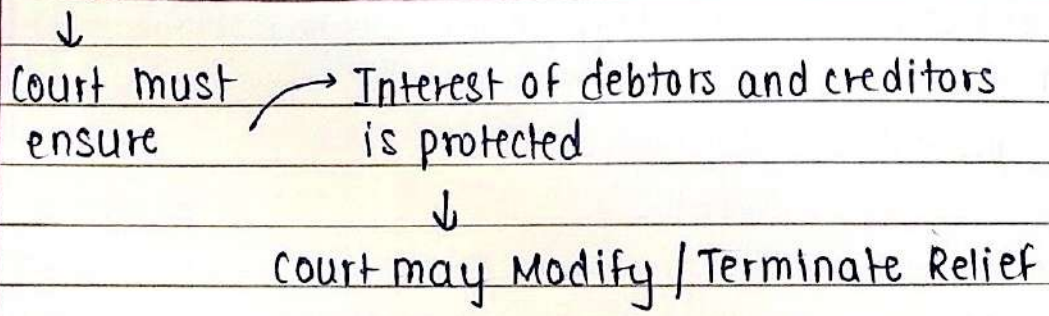 ↓
Court must → Interest of debtors and creditors
ensure is protected
↓
Court may Modify / Terminate Relief